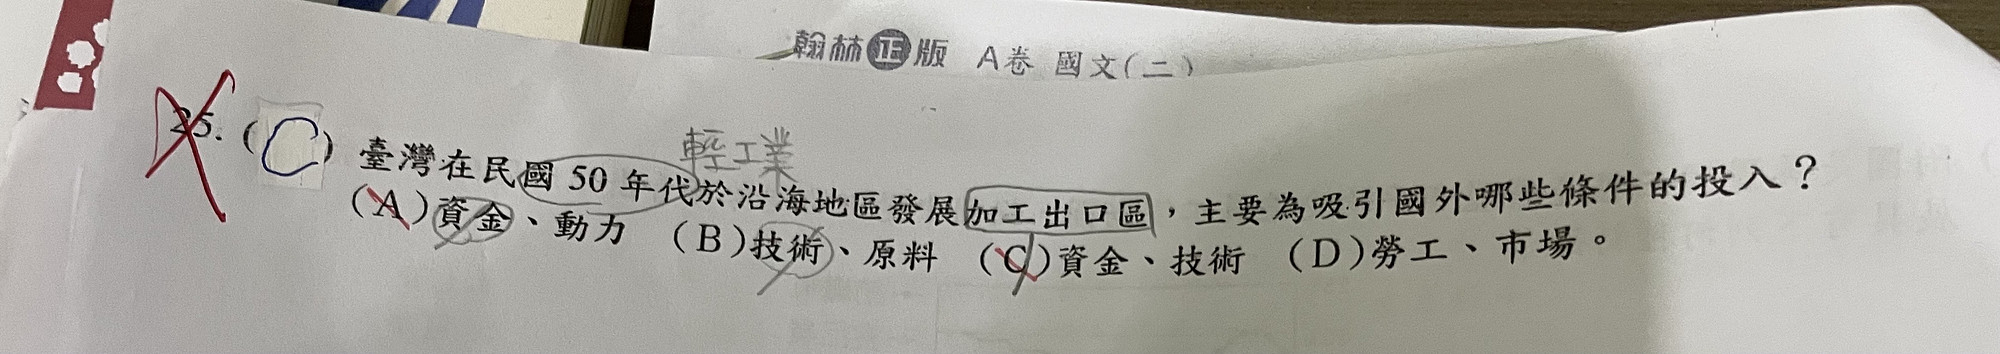 翰林正版 A卷 國文(二)
輕工業
25. (C) 臺灣在民國50年代於沿海地區發展加工出口區，主要為吸引國外哪些條件的投入？
(A)資金、動力 (B)技術、原料 (C)資金、技術 (D)勞工、市場。